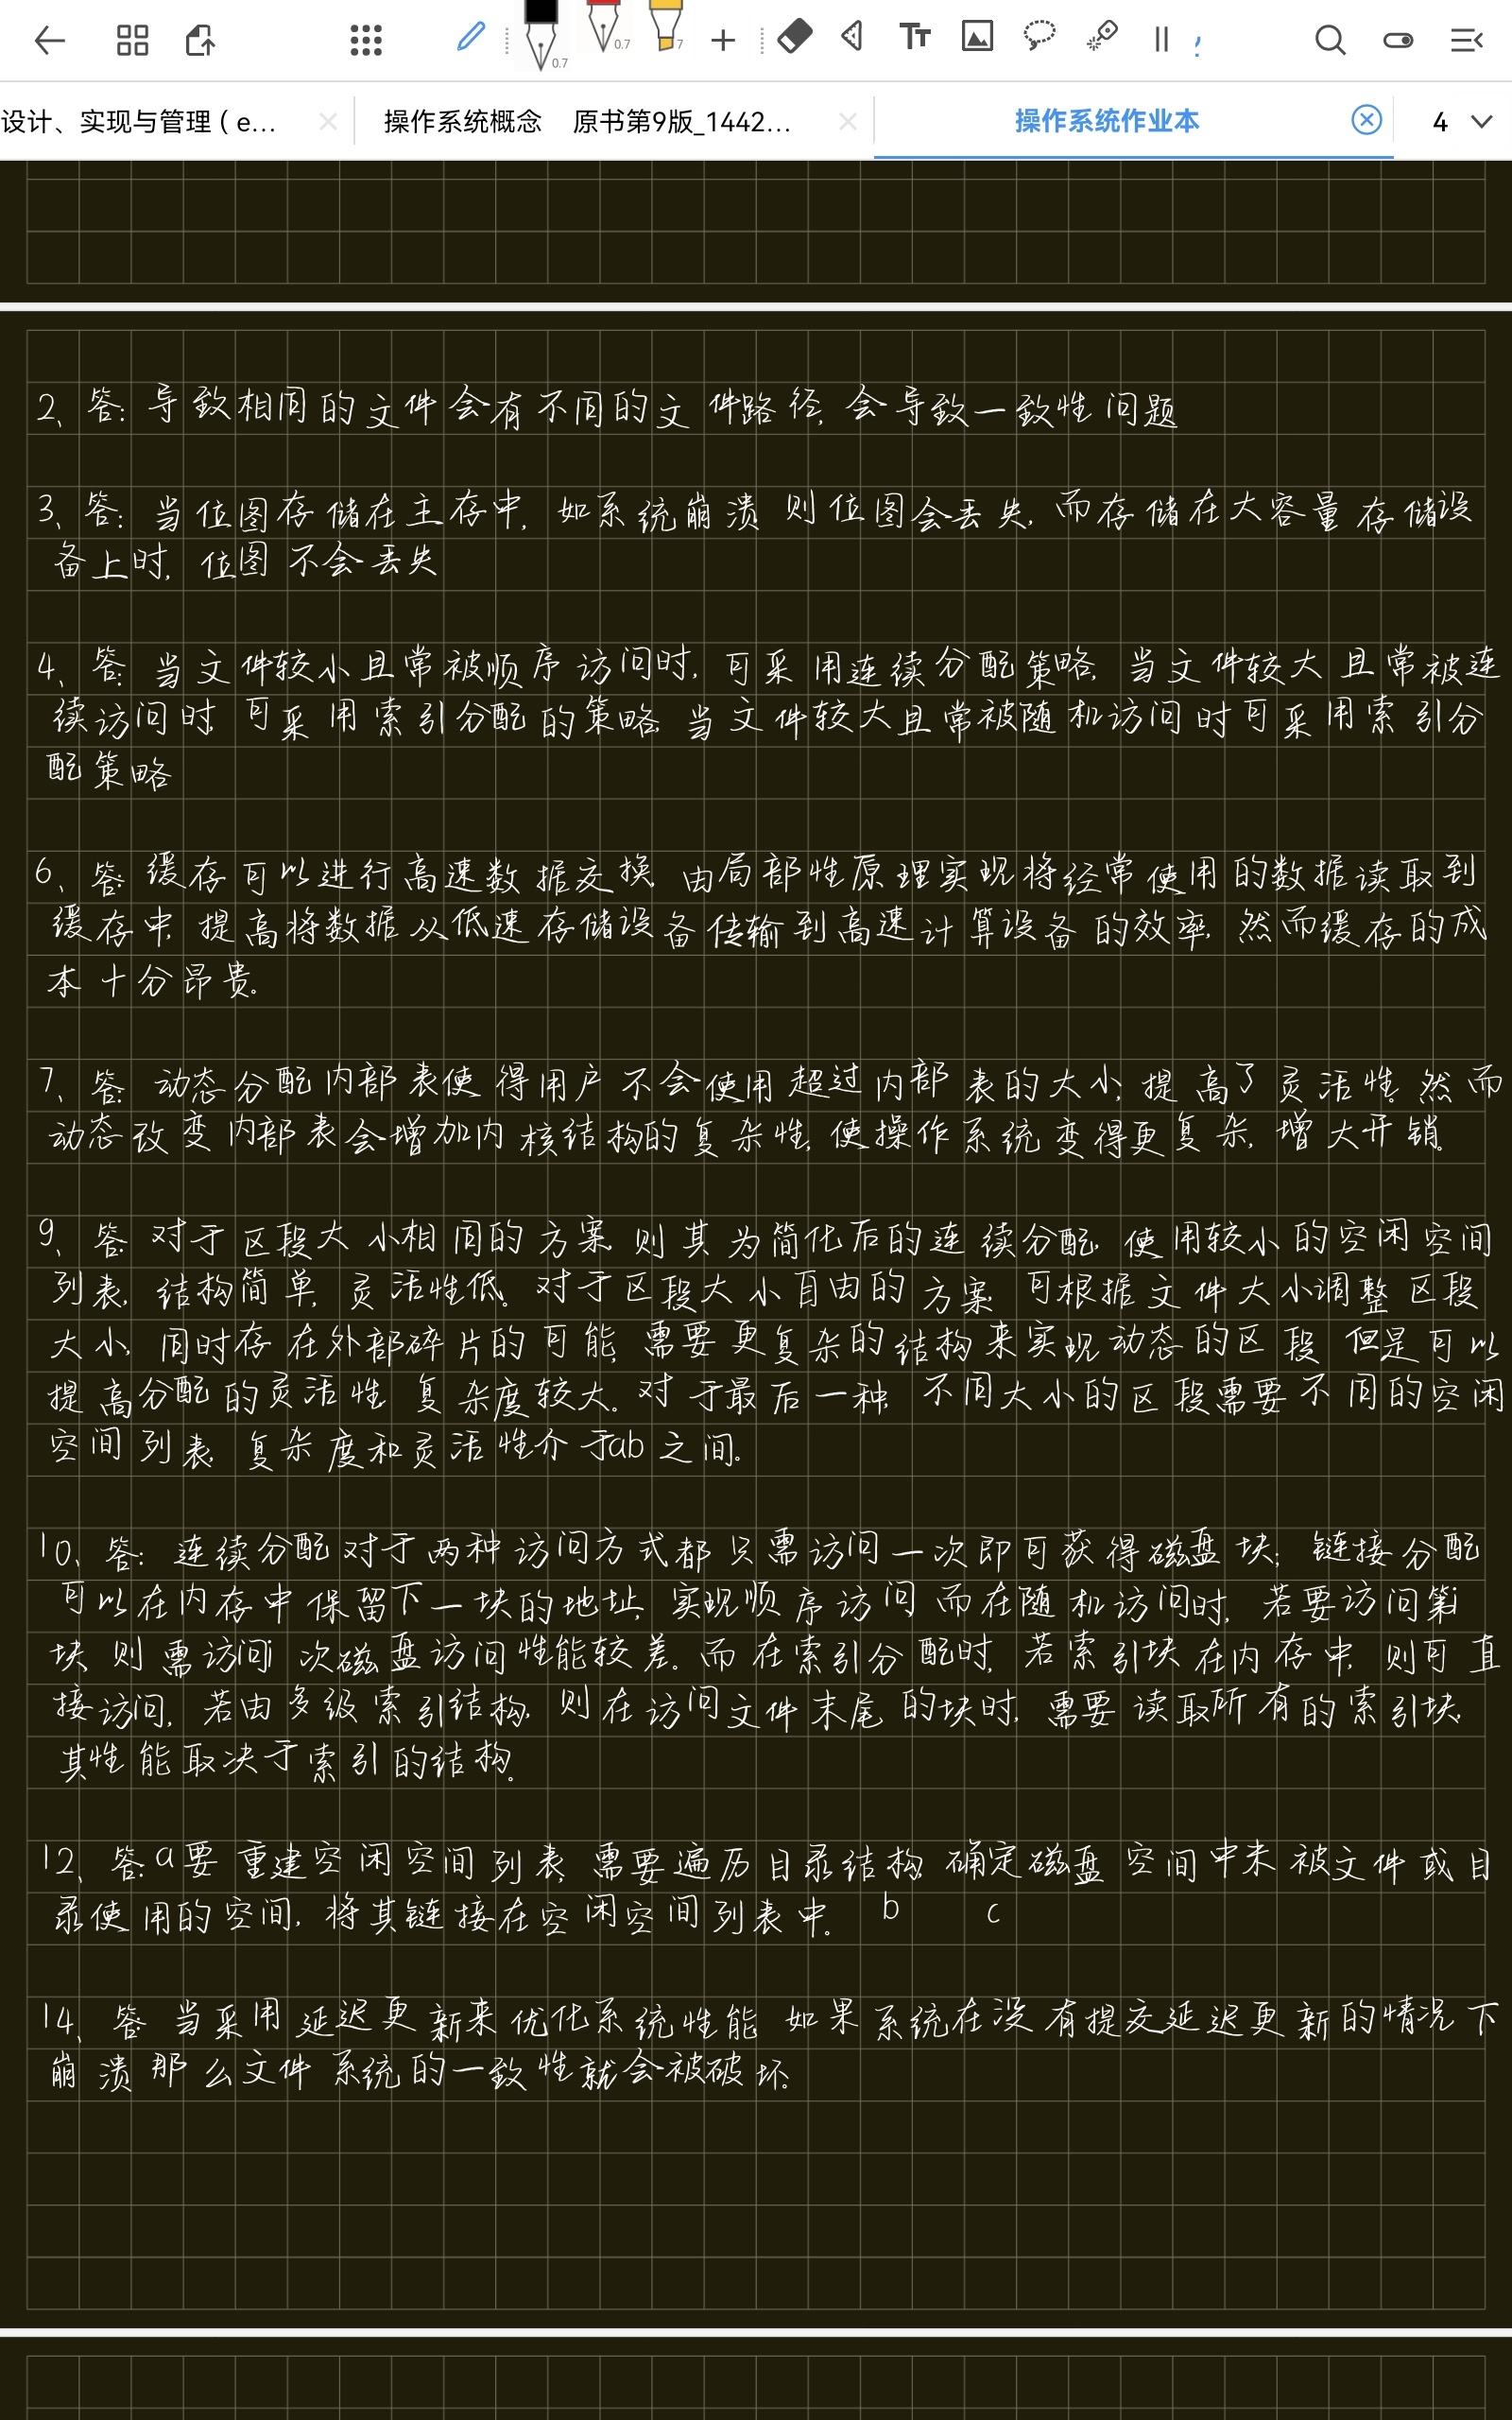 0.7
0.7
7
设计、实现与管理 ( e...
操作系统概念 原书第9版_1442...
操作系统作业本
4
2、答: 导致相同的文件会有不同的文件路径, 会导致一致性问题
3、答: 当位图存储在主存中, 如系统崩溃则位图会丢失, 而存储在大容量存储设
备上时, 位图不会丢失
4、答: 当文件较小且常被顺序访问时, 可采用连续分配策略, 当文件较大且常被连
续访问时, 可采用索引分配的策略, 当文件较大且常被随机访问时可采用索引分
配策略
6、答: 缓存可以进行高速数据交换, 由局部性原理实现将经常使用的数据读取到
缓存中, 提高将数据从低速存储设备传输到高速计算设备的效率, 然而缓存的成
本十分昂贵。
7、答: 动态分配内部表使得用户不会使用超过内部表的大小, 提高了灵活性。然而
动态改变内部表会增加内核结构的复杂性, 使操作系统变得更复杂, 增大开销。
9、答: 对于区段大小相同的方案, 则其为简化后的连续分配, 使用较小的空闲空间
列表, 结构简单, 灵活性低。对于区段大小自由的方案, 可根据文件大小调整区段
大小, 同时存在外部碎片的可能, 需要更复杂的结构来实现动态的区段, 但是可以
提高分配的灵活性, 复杂度较大。对于最后一种, 不同大小的区段需要不同的空闲
空间列表, 复杂度和灵活性介于ab之间。
10、答: 连续分配对于两种访问方式都只需访问一次即可获得磁盘块; 链接分配
可以在内存中保留下一块的地址, 实现顺序访问, 而在随机访问时, 若要访问第i
块, 则需访问i次磁盘访问性能较差。而在索引分配时, 若索引块在内存中, 则可直
接访问, 若由多级索引结构, 则在访问文件末尾的块时, 需要读取所有的索引块,
其性能取决于索引的结构。
12、答: a要重建空闲空间列表, 需要遍历目录结构, 确定磁盘空间中未被文件或目
录使用的空间, 将其链接在空闲空间列表中。 b c
14、答: 当采用延迟更新来优化系统性能, 如果系统在没有提交延迟更新的情况下
崩溃, 那么文件系统的一致性就会被破坏。